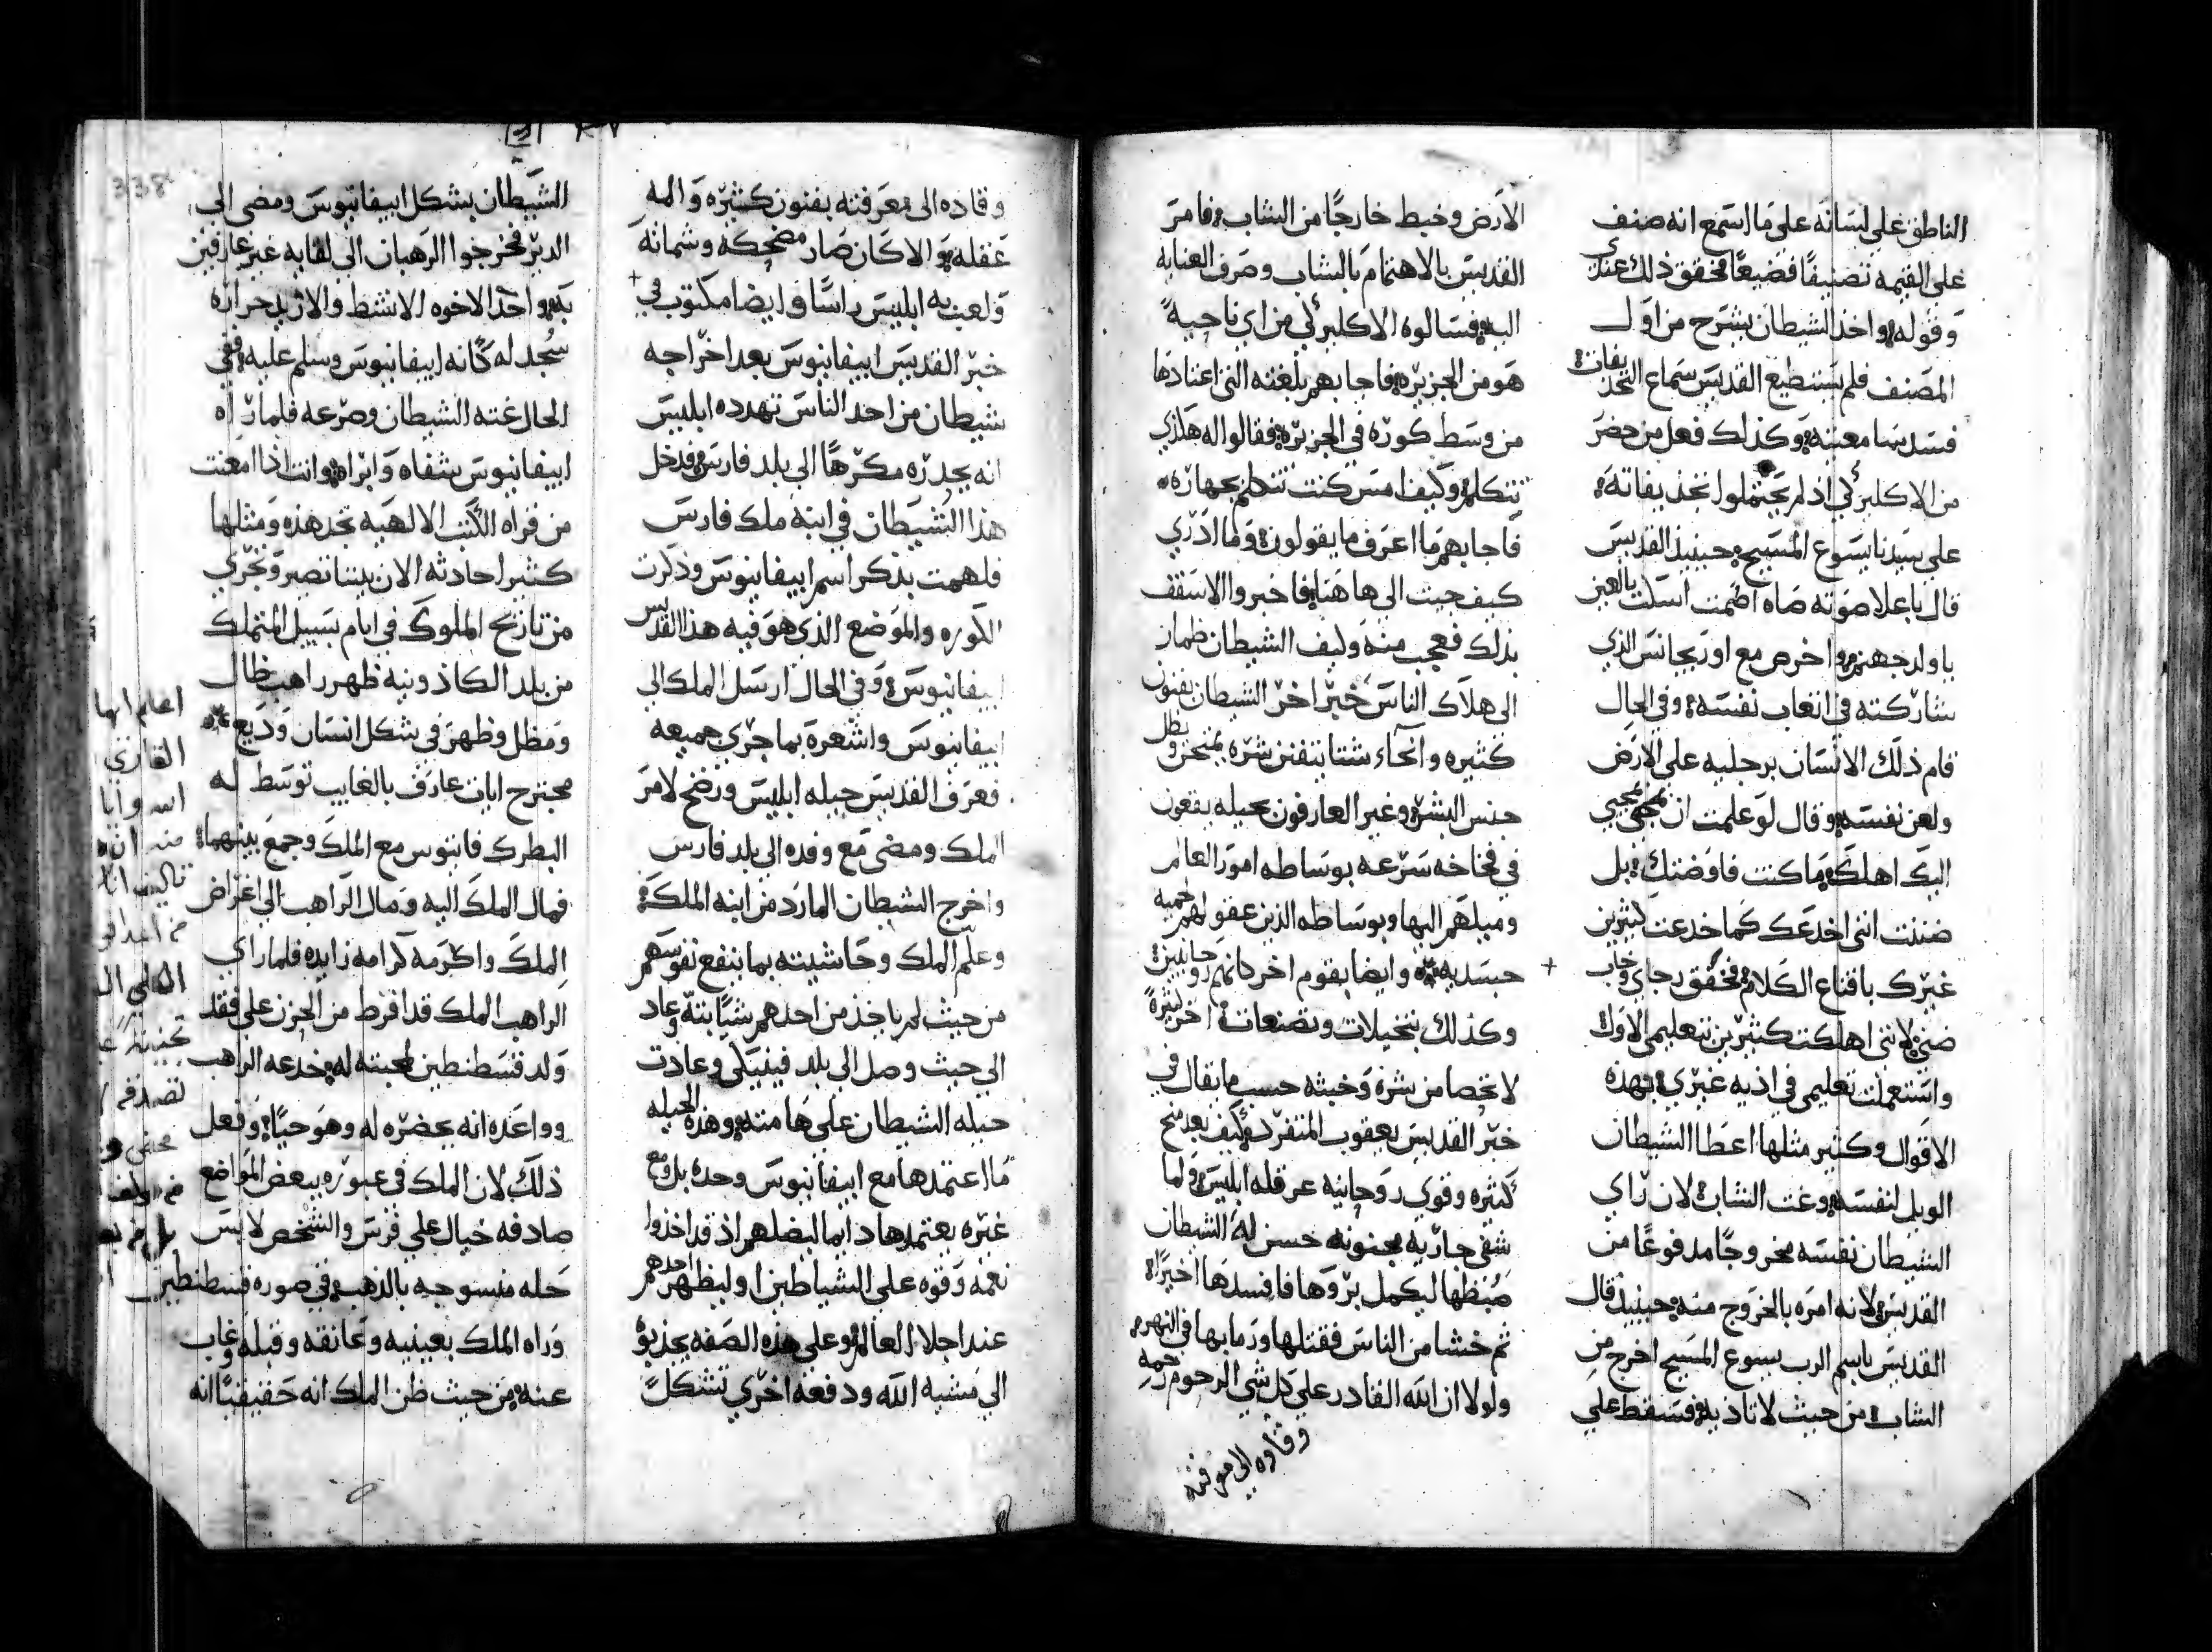 الناطق على لسانه على ما استمع انه صنف
على القيمه تصنيفًا فضيعًا فحقق ذلك عندي
وقوله واخذ الشيطان يشرح من اول
المصنف فلم يستطيع القديس سماع التجديفات
فسد مسامعته وكذلك فعل من حضر
من الاكليركي اذ لم يحتملوا تجديفاته
على سيدنا يسوع المسيح حينيذ القديس
قال باعلا صوته صاه اصمت
يا ولد جهنم واخرص مع اوريجانس الذي
شاركته في اتعاب نفسه وفي الحال
قام ذلك الانسان برجليه على الارض
ولعن نفسه وقال لو علمت ان مجيي
اليك اهلك ما كنت فاوضتك بل
ضننت انني اخدعك كما خدعت كثيرين
غيرك باقناع الكلام فحقق رجاي وخاب
ضني لانني اهلكت كثيرين بتعليمي الاول
واستعملت تعليمي في اذيه غيري بهذه
الاقوال وكثير مثلها اعطا الشيطان
الويل لنفسه وغت الشاب لان راي
الشيطان نفسه مخروجًا مدفوعًا من
القديس لانه امره بالخروج منه حينيذ قال
القديس باسم الرب يسوع المسيح اخرج من
الشاب من حيث لا تاذيه فسقط على
الارض وخبط خارجًا من الشاب فامر
القديس بالاهتمام بالشاب وصرف العنايه
اليه فسالوه الاكليركي من اي ناحيةً
هو من الجزيره فاجابهم بلغته التي اعتادها
من وسط كوره في الجزيره فقالوا له هلذي
تتكلم وكيف امس كنت تتكلم بجهاره
فاجابهم ما اعرف ما يقولون وما ادري
كيف جيت الى هاهنا فاخبروا الاسقف
بذلك فعجب منه وكيف الشيطان ظمان
الى هلاك الناس خبر اخر الشيطان بفنون
كثيره وانحاء شتا يتفنن شره يمتحن وبكل
جنس البشر وغير العارفون بحيله يقعون
في فخاخه سرعه بوساطه امور العالم
وميلهم اليها وبوساطه الذين عقولهم لحميه
جسديه وايضا بقوم اخر كانهم روحانيين
وكذلك بتخيلات وتصنعات اخر كثيرةً
لا تحصا من شره وخبثه حسب ما يقال في
خبر القديس يعقوب المتفرد وكيف بعد مدح
كثيره وقوي روحانيه عرقله ابليس ولما
شفي جاريه مجنونه حسن له الشيطان
ضبطها ليكمل بروها فافسدها اخيرًا
ثم خشا من الناس فقتلها ورما بها في النهر
ولولا ان الله القادر على كل شي الرحوم رحمه
وقاده الى معرفته
وقاده الى معرفته بفنون كثيره والهه
عقله والا كان صار مضحكه وشماته
ولعب به ابليس راسًا وايضا مكتوب في
خبر القديس ابيفانيوس بعد اخراجه
شيطان من احد الناس تهدده ابليس
انه يجدره مكرهًا الى بلد فارس فدخل
هذا الشيطان في ابنه ملك فارس
فلهمت بذكر اسم ابيفانيوس وذكرت
الكوره والموضع الذي هو فيه هذا القديس
ابيفانيوس وفي الحال ارسل الملك الى
ابيفانيوس واشعره بما جري جميعه
فعرف القديس حيله ابليس ورضخ لامر
الملك ومضى مع وفده الى بلد فارس
واخرج الشيطان المارد من ابنه الملك
وعلم الملك وحاشيته بما ينفع نفوسهم
من حيث لم ياخذ من احدهم شيًا بته وعاد
الى حيث وصل الى بلد فينيكي وعادت
حيله الشيطان على هامته وهذه الحيله
ما اعتمدها مع ابيفانيوس وحده بل ومع
غيره يعتمدها دايما ليضلهم اذ قد اخذوا
نعمه وقوه على الشياطين او ليظهر احدهم
عند اجلاء العالم وعلى هذه الصفه يجذبوه
الى مشيه الله ودفعه اخري تشكل
الشيطان بشكل ابيفانيوس ومضى الى
الدير فخرجوا الرهبان الى لقايه غير عارفين
به واحد الاخوه الانشط والازيد حراره
سجد له كانه ابيفانيوس وسلم عليه ففي
الحال غته الشيطان وصرعه فلما راه
ابيفانيوس شفاه وابراه وانت اذا امعنت
من قراه الكتب الالهيه تجد هذه ومثلها
كثير احادثه الان بيننا تصير وتجري
من تاريخ الملوك في ايام بسيل المتملك
من بلد الكاذونيه ظهر راهب ظال
ومظل وظهر في شكل انسان وديع
مجترح ايات عارف بالغايب توسط له
البطرك فانيوس مع الملك وجمع بينهما
فمال الملك اليه ومال الراهب الى اغراض
الملك واكرمه كرامه زايده فلما راي
الراهب الملك قد افرط من الحزن على فقد
ولد قسطنطين لمحبته له خدعه الراهب
وواعده انه يحضره له وهو حيًا وفعل
ذلك لان الملك في عبوره ببعض المواضع
صادفه خيال على فرس والشخص لابس
حله منسوجه بالذهب في صوره قسطنطين
وراه الملك بعينيه وعانقه وقبله وغاب
عنه من حيث ظن الملك انه حقيقيًا انه
338
اعلم ايها
القاري